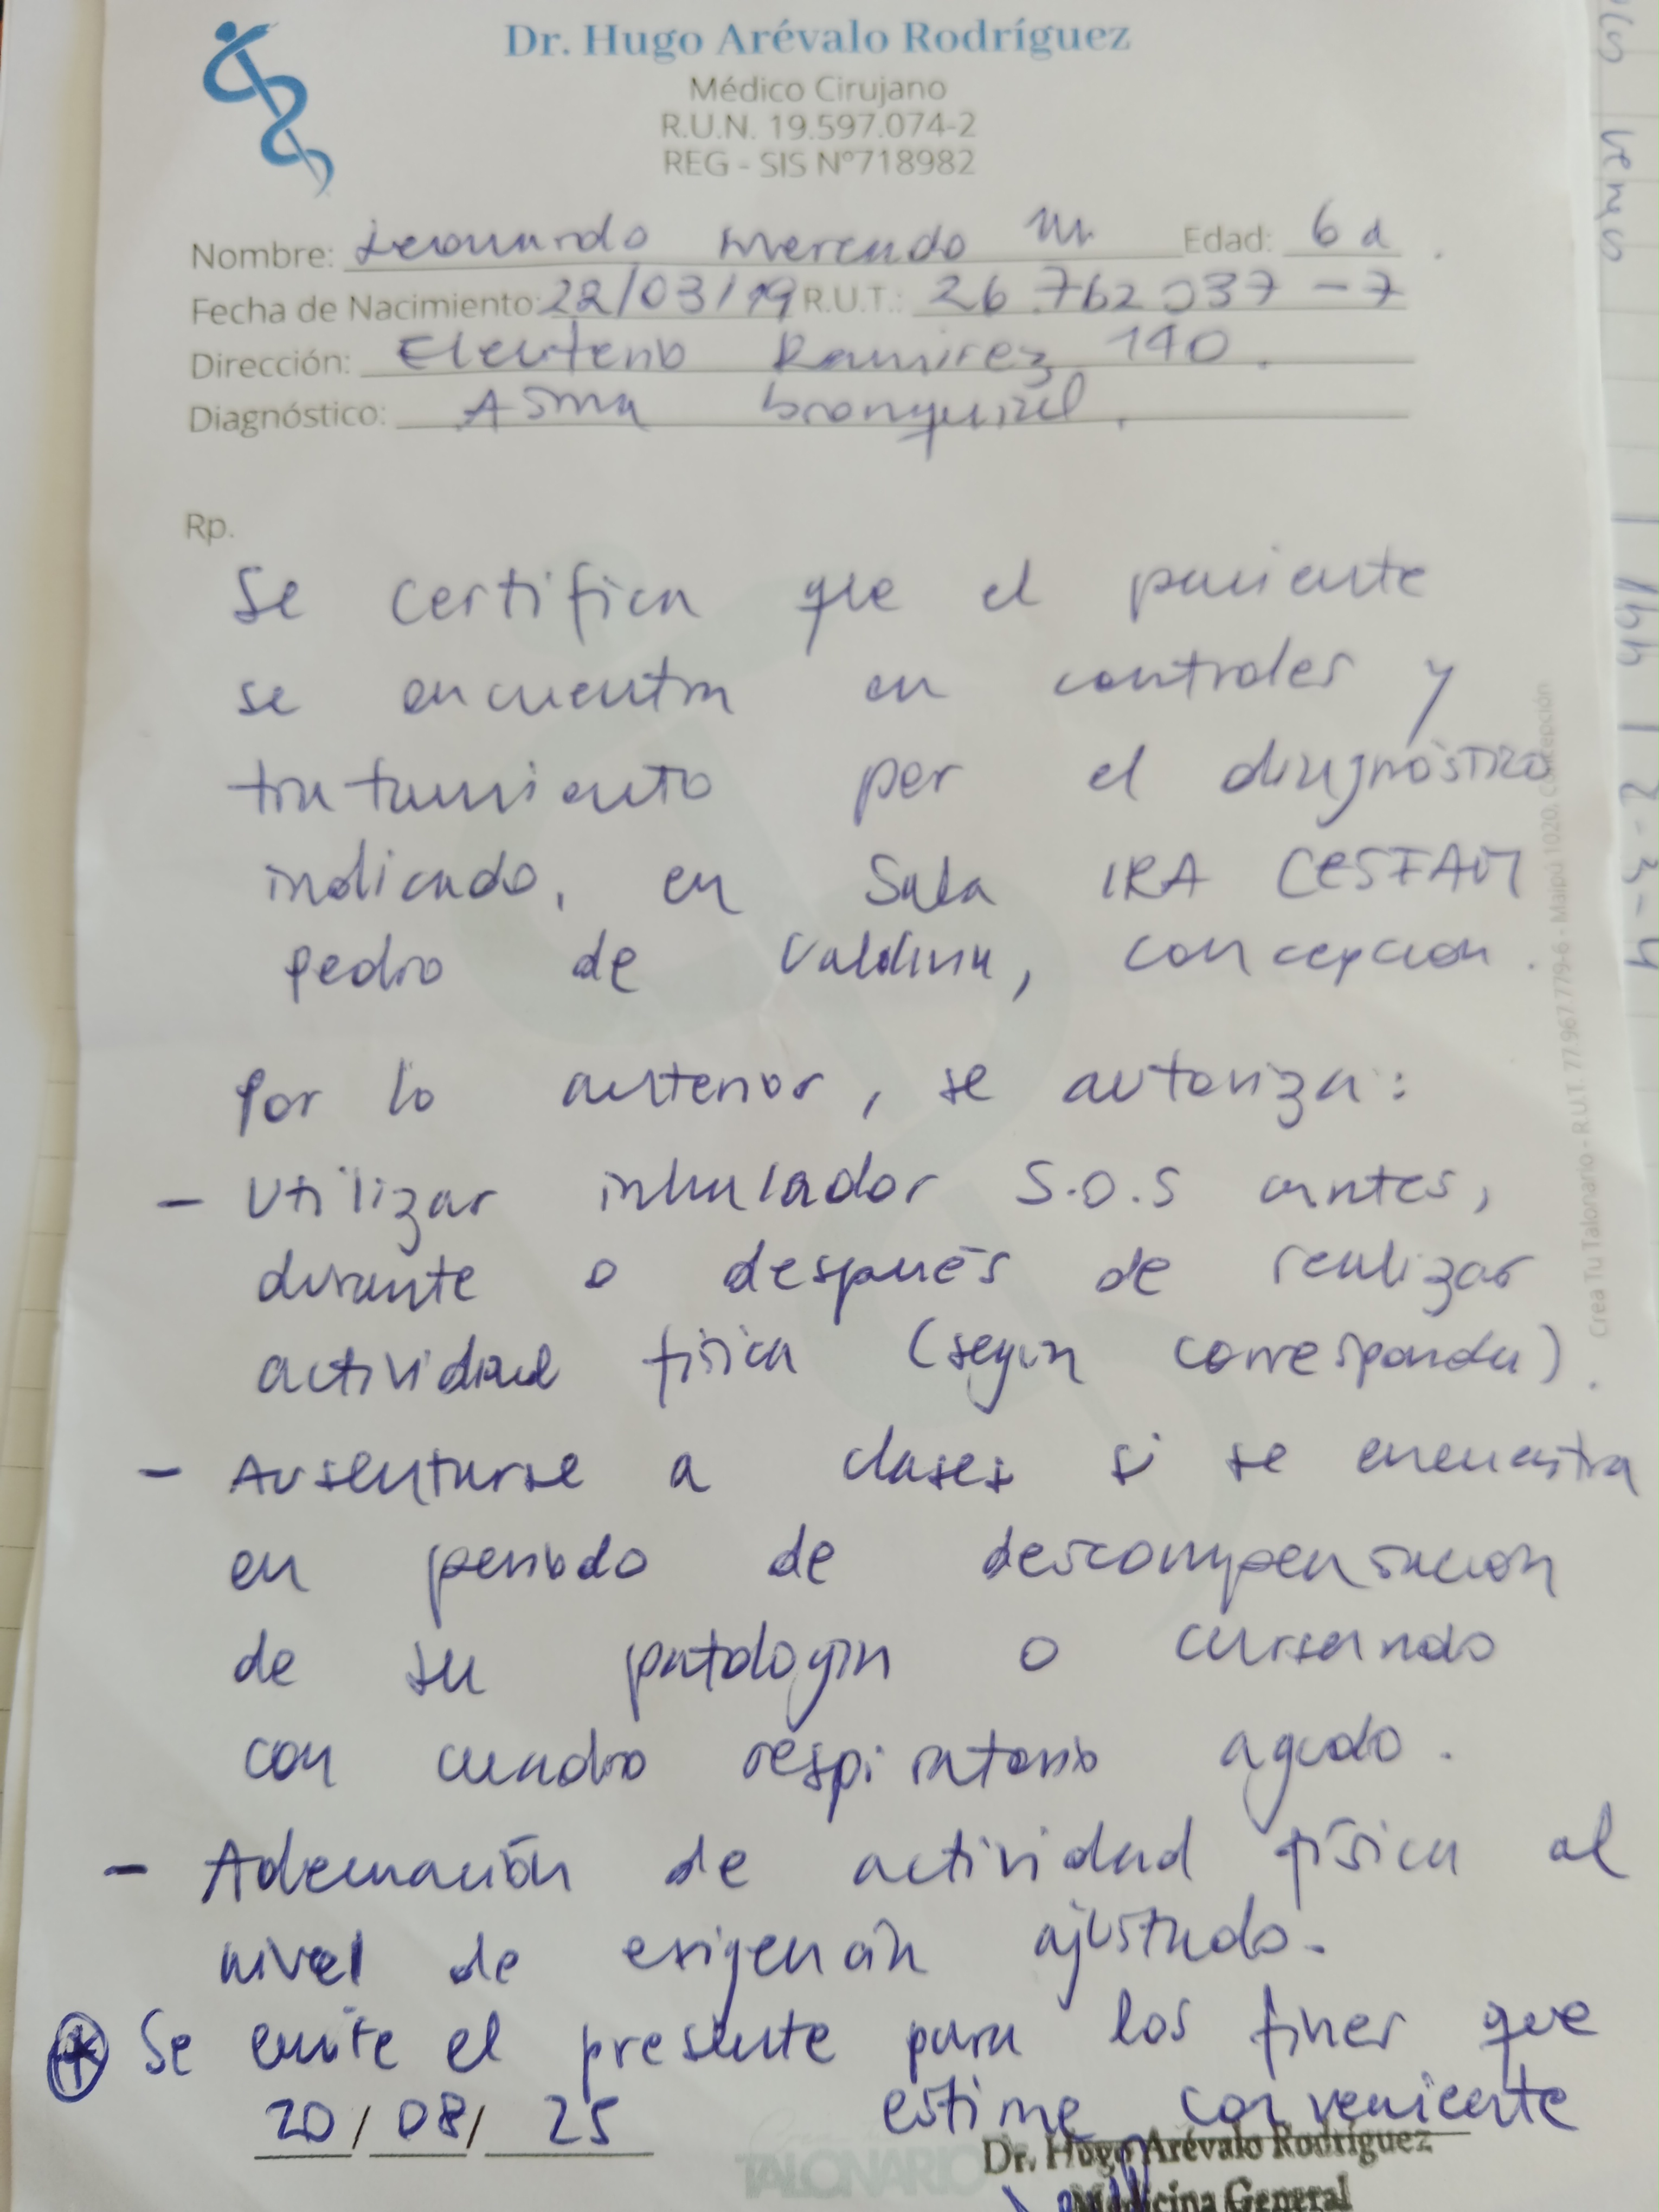 Dr. Hugo Arévalo Rodríguez
Médico Cirujano
R.U.N. 19.597.074-2
REG - SIS N°718982
Nombre: Leonardo Mercado M Edad: 6 a.
Fecha de Nacimiento: 22/03/19 R.U.T.: 26.762.037-7
Dirección: Eleuterio Ramirez 140.
Diagnóstico: Asma bronquial.
Rp.
Se certifica que el paciente
se encuentra en controles y
tratamiento por el diagnóstico
indicado, en Sala IRA CESFAM
pedro de Valdivia, concepcion.
Por lo anterior, se autoriza:
- Utilizar inhalador S.O.S antes,
durante o después de realizar
actividad física (según corresponda).
- Ausentarse a clases si se encuentra
en periodo de descompensacion
de su patologia o cursando
con cuadro respiratorio agudo.
- Adecuación de actividad física al
nivel de exigencia ajustado.
* Se emite el presente para los fines que
estime conveniente
20/08/25
TALONARIO
Dr. Hugo Arévalo Rodríguez
Medicina General
Crea Tu Talonario - R.U.T. 77.967.779-6 - Maipú 1020, Concepción